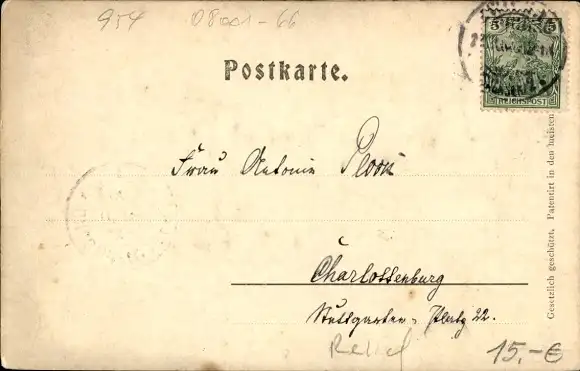 954 08001-66
5 5
REICHSPOST
Postkarte.
Frau Antonie
Charlottenburg
Stuttgarter-Platz 22.
Gesetzlich geschützt. Patentirt in den meisten
Relief
15,-€